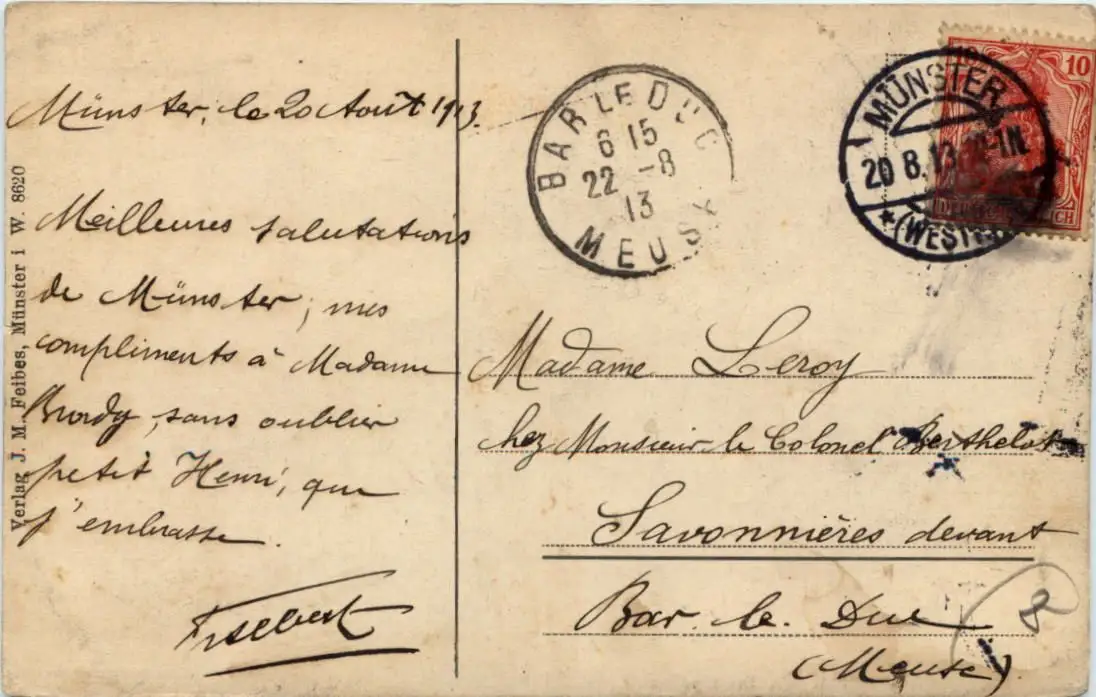 Münster, le 20 Août 1913.
Meilleures salutations
de Münster; mes
compliments à Madame
sans oublier
petit Henri, que
j'embrasse.
Verlag J. M. Feibes, Münster i W. 8620
BAR LE DUC
6 15
22 -8
13
MEUSE
MÜNSTER
20 8.13
*(WESTF.)
10
Madame Leroy
chez Monsieur le Colonel Berthelot
Savonnières devant
Bar. le. Duc
(Meuse).
8